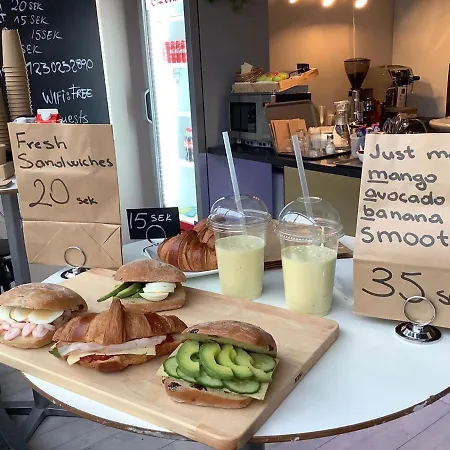 20 SEK
15 SEK
15 SEK
SEK
1230252890
WiFi FREE
Guests
Fresh
Sandwiches
20 SEK
15 SEK
Just m
mango
avocado
banana
Smoot
35